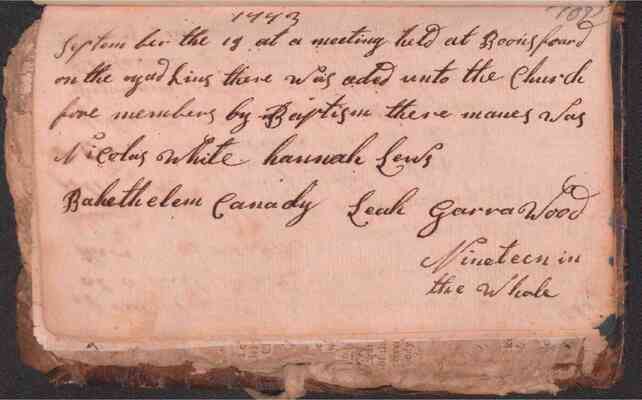 1773
September the 19 at a meeting held at Boonsfoard
on the yadkins there was aded unto the Church
five members by Baptism there names was
Nicolas White hannah Lews
Bahethelem Canady Leah Garra Wood
Nineteen in
the Whole